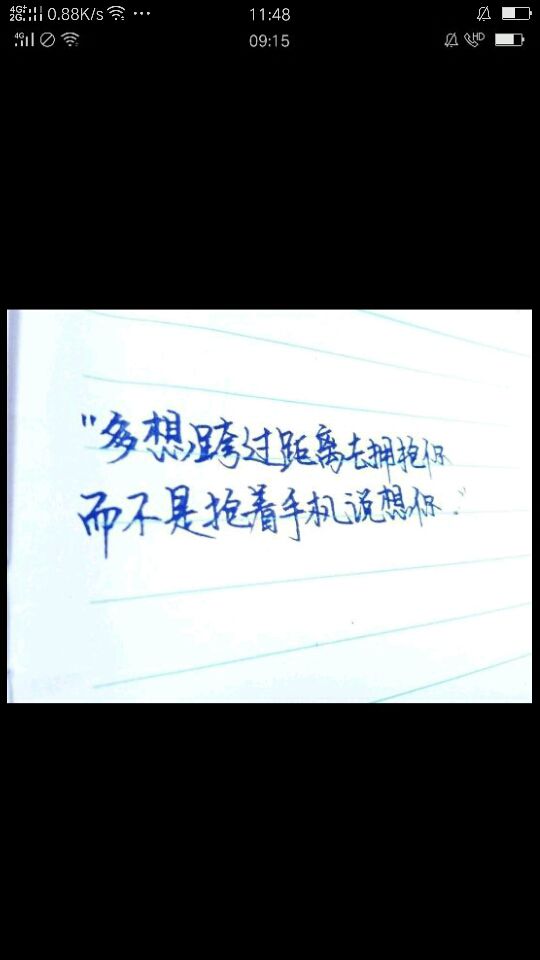 4G+ 2G 0.88K/s ... 11:48
4G 09:15 HD
"多想跨过距离去拥抱你
而不是抱着手机说想你."